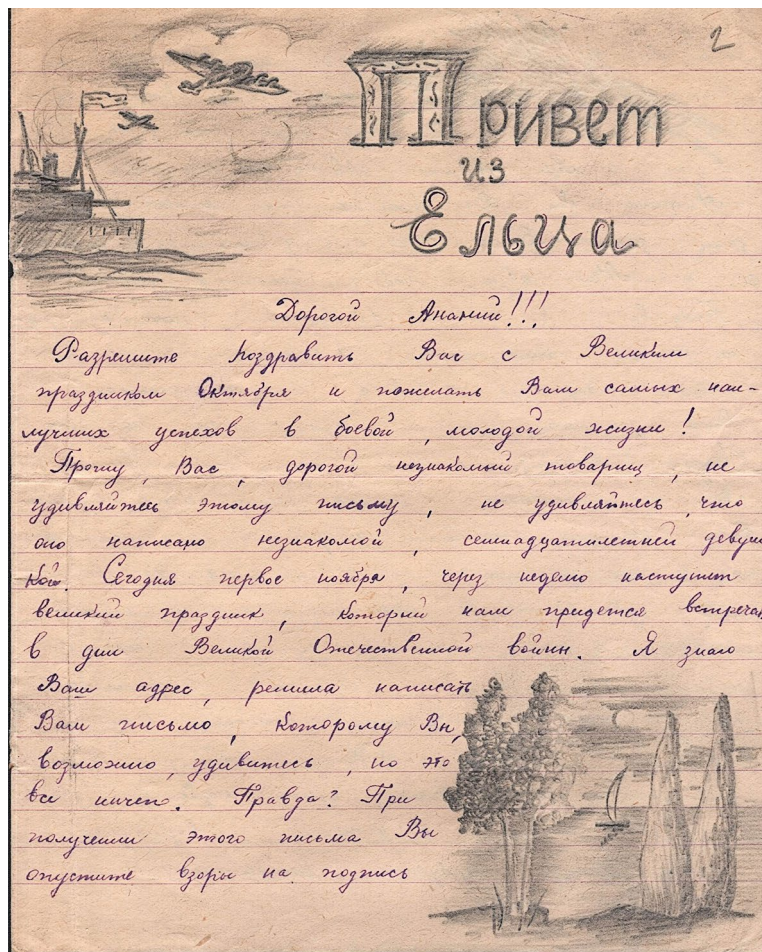 2
Привет
из
Ельца
Дорогой Ананий!!!
Разрешите поздравить Вас с Великим
праздником Октября и пожелать Вам самых наи-
лучших успехов в боевой, молодой жизни!
Прошу, Вас, дорогой незнакомый товарищ, не
удивляйтесь этому письму, не удивляйтесь, что
оно написано незнакомой, семнадцатилетней девуш
кой. Сегодня первое ноября, через неделю наступит
великий праздник, который нам придется встречать
в дни Великой Отечественной войны. Я знаю
Ваш адрес, решила написать
Вам письмо, которому Вы,
возможно, удивитесь, но это
все ничего. Правда? При
получении этого письма Вы
опустите взоры на подпись